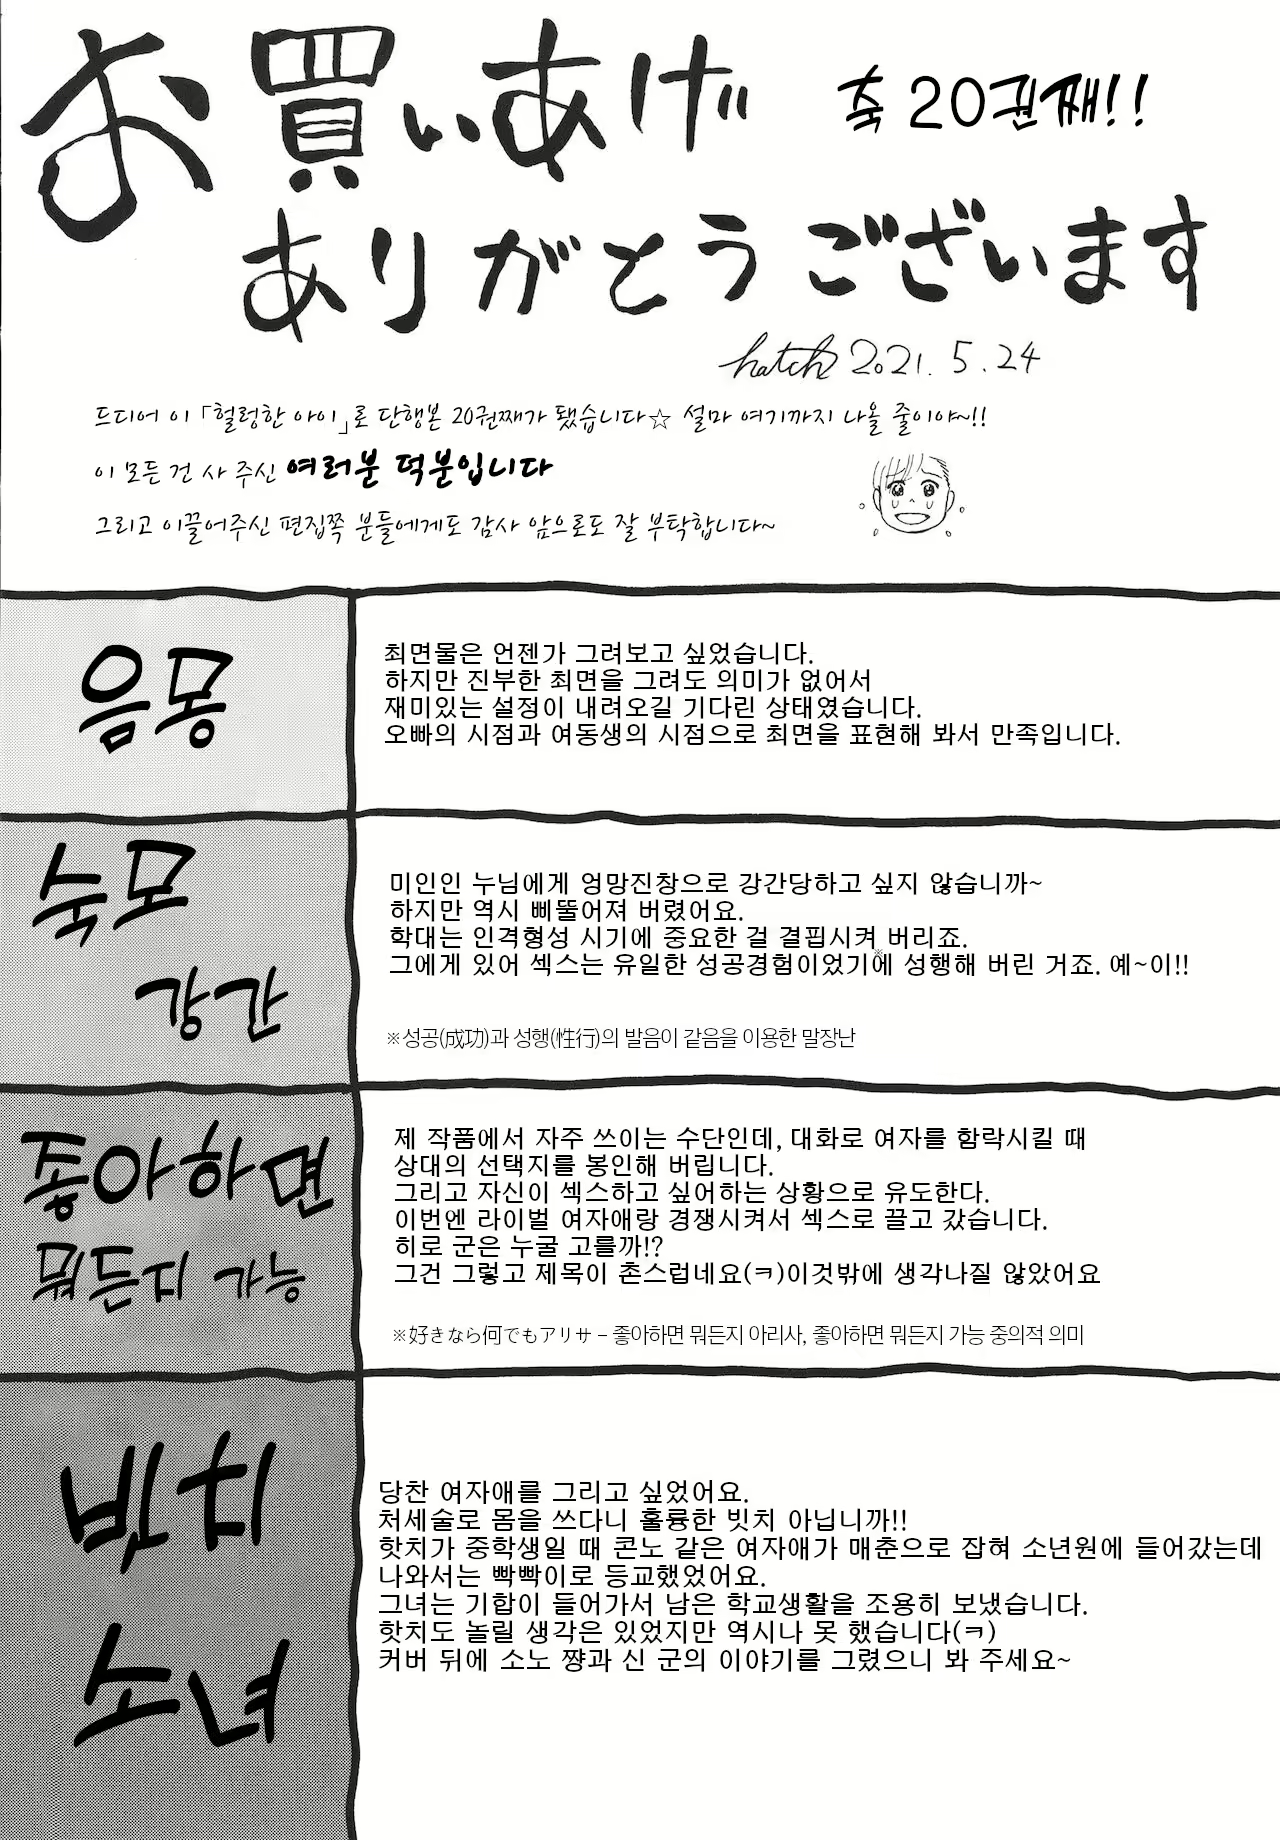 お買いあげ
축 20권째!!
ありがとうございます
hatch 2021.5.24
드디어 이 「헐렁한 아이」로 단행본 20권째가 됐습니다☆ 설마 여기까지 나올 줄이야~!!
이 모든 건 사 주신 여러분 덕분입니다
그리고 이끌어주신 편집쪽 분들에게도 감사 앞으로도 잘 부탁합니다~
음몽
최면물은 언젠가 그려보고 싶었습니다.
하지만 진부한 최면을 그려도 의미가 없어서
재미있는 설정이 내려오길 기다린 상태였습니다.
오빠의 시점과 여동생의 시점으로 최면을 표현해 봐서 만족입니다.
숙모
강간
미인인 누님에게 엉망진창으로 강간당하고 싶지 않습니까~
하지만 역시 삐뚤어져 버렸어요.
학대는 인격형성 시기에 중요한 걸 결핍시켜 버리죠.
※
그에게 있어 섹스는 유일한 성공경험이었기에 성행해 버린 거죠. 예~이!!
※성공(成功)과 성행(性行)의 발음이 같음을 이용한 말장난
좋아하면
뭐든지 가능
제 작품에서 자주 쓰이는 수단인데, 대화로 여자를 함락시킬 때
상대의 선택지를 봉인해 버립니다.
그리고 자신이 섹스하고 싶어하는 상황으로 유도한다.
이번엔 라이벌 여자애랑 경쟁시켜서 섹스로 끌고 갔습니다.
히로 군은 누굴 고를까!?
그건 그렇고 제목이 촌스럽네요(ㅋ)이것밖에 생각나질 않았어요
※好きなら何でもアリサ – 좋아하면 뭐든지 아리사, 좋아하면 뭐든지 가능 중의적 의미
빗치
소녀
당찬 여자애를 그리고 싶었어요.
처세술로 몸을 쓰다니 훌륭한 빗치 아닙니까!!
핫치가 중학생일 때 콘노 같은 여자애가 매춘으로 잡혀 소년원에 들어갔는데
나와서는 빡빡이로 등교했었어요.
그녀는 기합이 들어가서 남은 학교생활을 조용히 보냈습니다.
핫치도 놀릴 생각은 있었지만 역시나 못 했습니다(ㅋ)
커버 뒤에 소노 쨩과 신 군의 이야기를 그렸으니 봐 주세요~